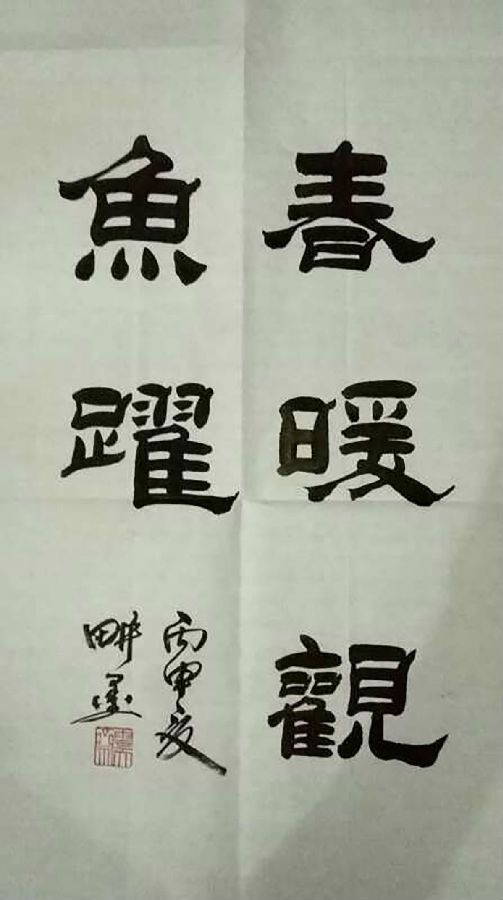 春暖觀
魚躍
丙申夏
畊墨